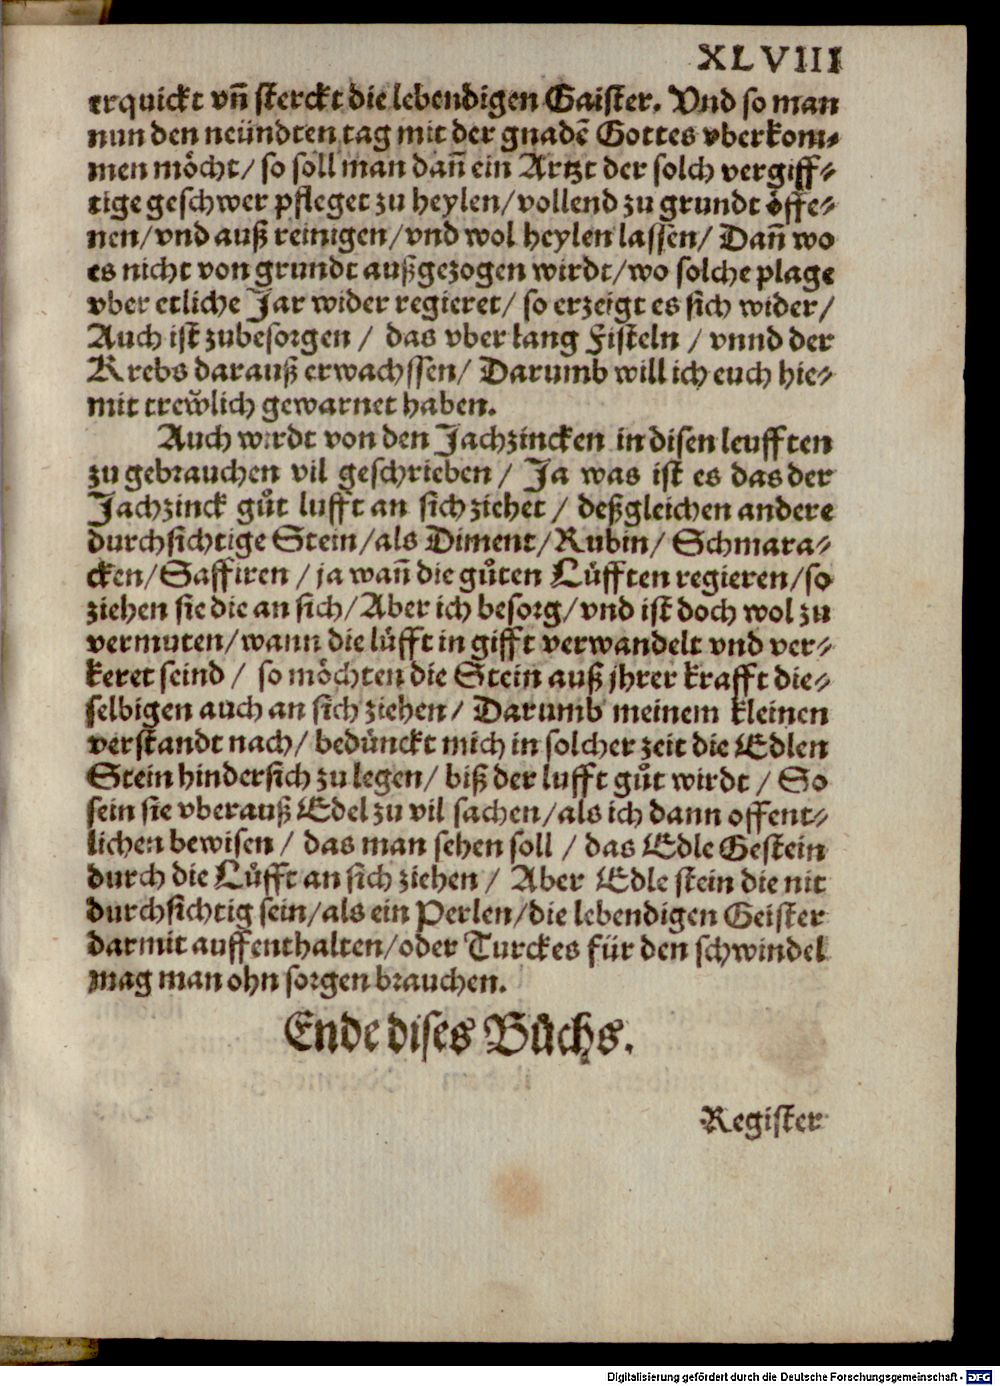 XLVIII
erquickt vñ sterckt die lebendigen Gaister. Vnd so man
nun den neündten tag mit der gnadẽ Gottes vberkom⸗
men möcht/ so soll man dañ ein Artzt der solch vergiff⸗
tige geschwer pfleget zu heylen/ vollend zu grundt öffe⸗
nen/ vnd auß reinigen/ vnd wol heylen lassen/ Dañ wo
es nicht von grundt außgezogen wirdt/ wo solche plage
vber etliche Jar wider regieret/ so erzeigt es sich wider/
Auch ist zubesorgen / das vber lang Fisteln / vnnd der
Krebs darauß erwachssen/ Darumb will ich euch hie⸗
mit trewlich gewarnet haben.
Auch wirdt von den Jachzincken in disen leufften
zu gebrauchen vil geschrieben / Ja was ist es das der
Jachzinck gůt lufft an sich ziehet / deßgleichen andere
durchsichtige Stein/ als Diment/ Rubin/ Schmara⸗
cken/ Saffiren / ja wañ die gůten Lüfften regieren/ so
ziehen sie die an sich/ Aber ich besorg/ vnd ist doch wol zu
vermuten/ wann die lüfft in gifft verwandelt vnd ver⸗
keret seind / so möchten die Stein auß jhrer krafft die⸗
selbigen auch an sich ziehen/ Darumb meinem kleinen
verstandt nach/ bedünckt mich in solcher zeit die Edlen
Stein hindersich zu legen/ biß der lufft gůt wirdt / So
sein sie vberauß Edel zu vil sachen/ als ich dann offent⸗
lichen bewisen / das man sehen soll / das Edle Gestein
durch die Lüfft an sich ziehen / Aber Edle stein die nit
durchsichtig sein/ als ein Perlen/ die lebendigen Geister
darmit auffenthalten/ oder Turckes für den schwindel
mag man ohn sorgen brauchen.
Ende dises Bůchs.
Register
Digitalisierung gefördert durch die Deutsche Forschungsgemeinschaft - DFG